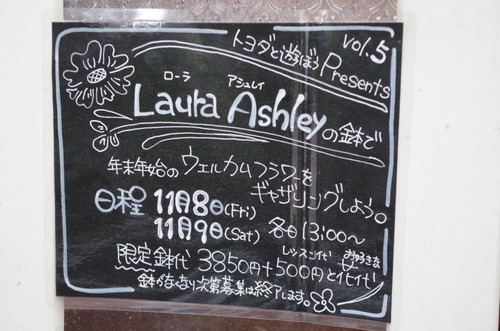 vol.5
トヨダと遊ぼう Presents
ローラ アシュレイ
Laura Ashley の鉢で
年末年始のウェルカムフラワーを
ギャザリングしよう。
日程 11月8日(Fri)
11月9日(Sat) 各日13:00〜
レッスン代 お好きな
限定鉢代 3850円+500円と花代
鉢がなくなり次第募集は終了します。